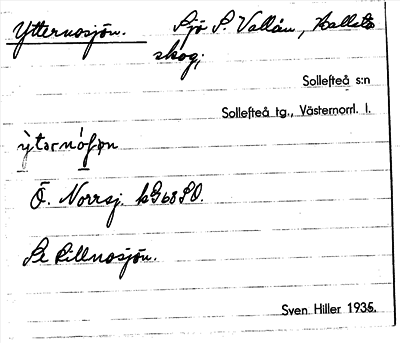 Ytternosjön. Sjö S. Vallån, Hallsta
skog;
Sollefteå s:n
Sollefteå tg., Västernorrl. l.
Ö. Norrsj. kG68SO.
Se Lillnosjön.
Sven Hiller 1935.